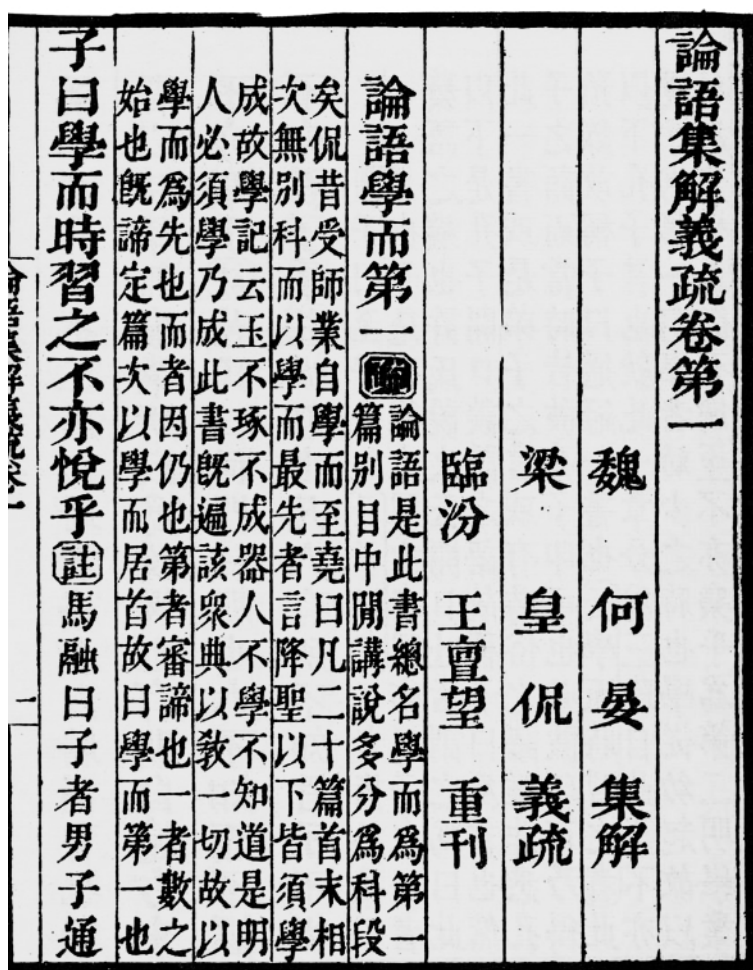 論語集解義疏卷第一
魏 何晏 集解
梁 皇侃 義疏
臨汾 王亶望 重刊
論語學而第一 疏 論語是此書總名學而爲第一
篇別目中閒講說多分爲科段
矣侃昔受師業自學而至堯曰凡二十篇首末相
次無別科而以學而最先者言降聖以下皆須學
成故學記云玉不琢不成器人不學不知道是明
人必須學乃成此書旣遍該衆典以敎一切故以
學而爲先也而者因仍也第者審諦也一者數之
始也旣諦定篇次以學而居首故曰學而第一也
子曰學而時習之不亦悅乎 註 馬融曰子者男子通